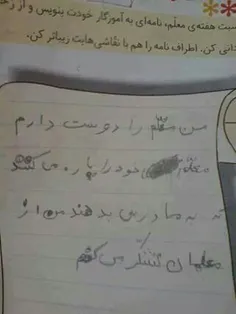 سبت هفته‌ی معلّم، نامه‌ای به آموزگار خودت بنویس و از زح
دانی کن. اطراف نامه را هم با نقّاشی‌هایت زیباتر کن.
من معلّم را دوست دارم
معلّم خود را پاره می کنند
که به ما درس بدهند من از
معلمان تشکر می کنم